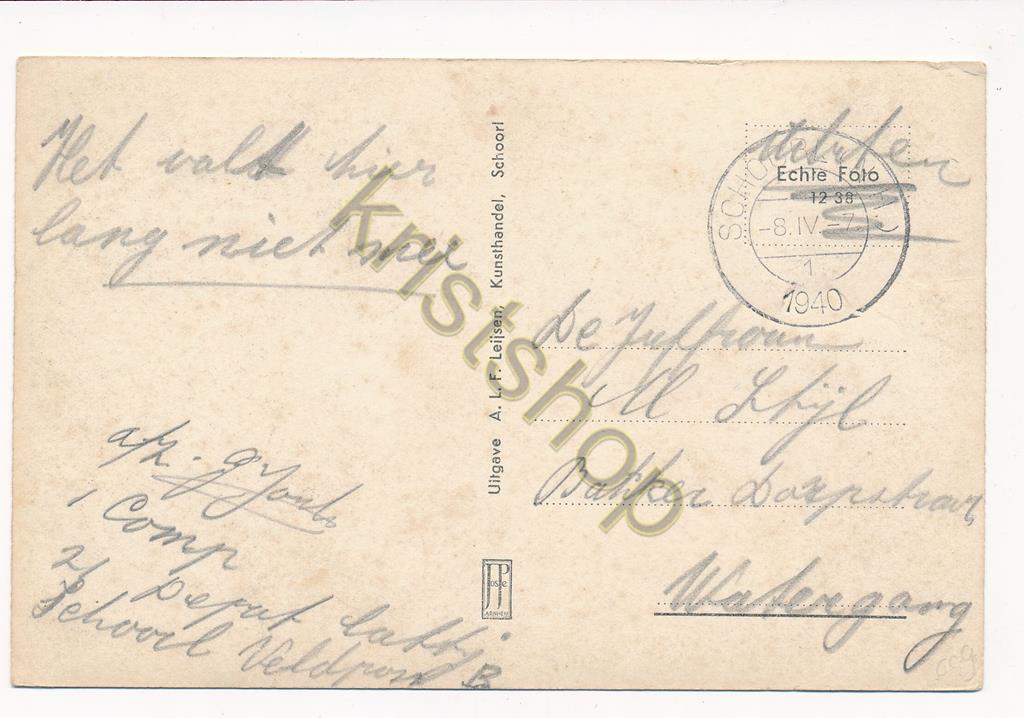 Het valt hier
lang niet mee
afz. G
1 Comp
2/ Depot
Schoorl Veldpost B
Uitgave A. L. F. Leijsen, Kunsthandel, Schoorl
JP
Poste
ARNHEM
Echte Foto
12 38
SCHOORL
-8.IV.-7
1
1940
De Juffrouw
M
Bakker Dorpstraat
Watergang
kristshop